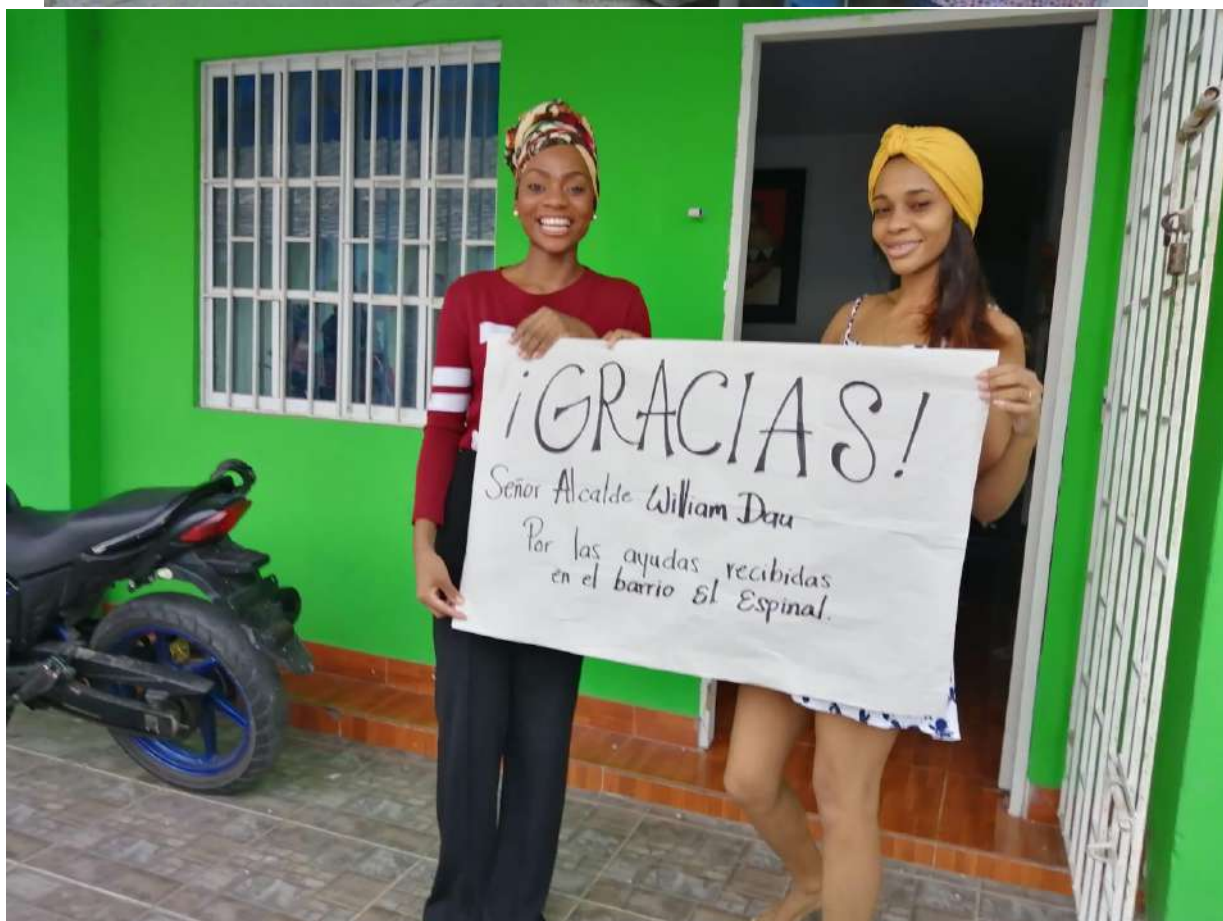 ¡GRACIAS!
Señor Alcalde William Dau
Por las ayudas recibidas
en el barrio El Espinal.